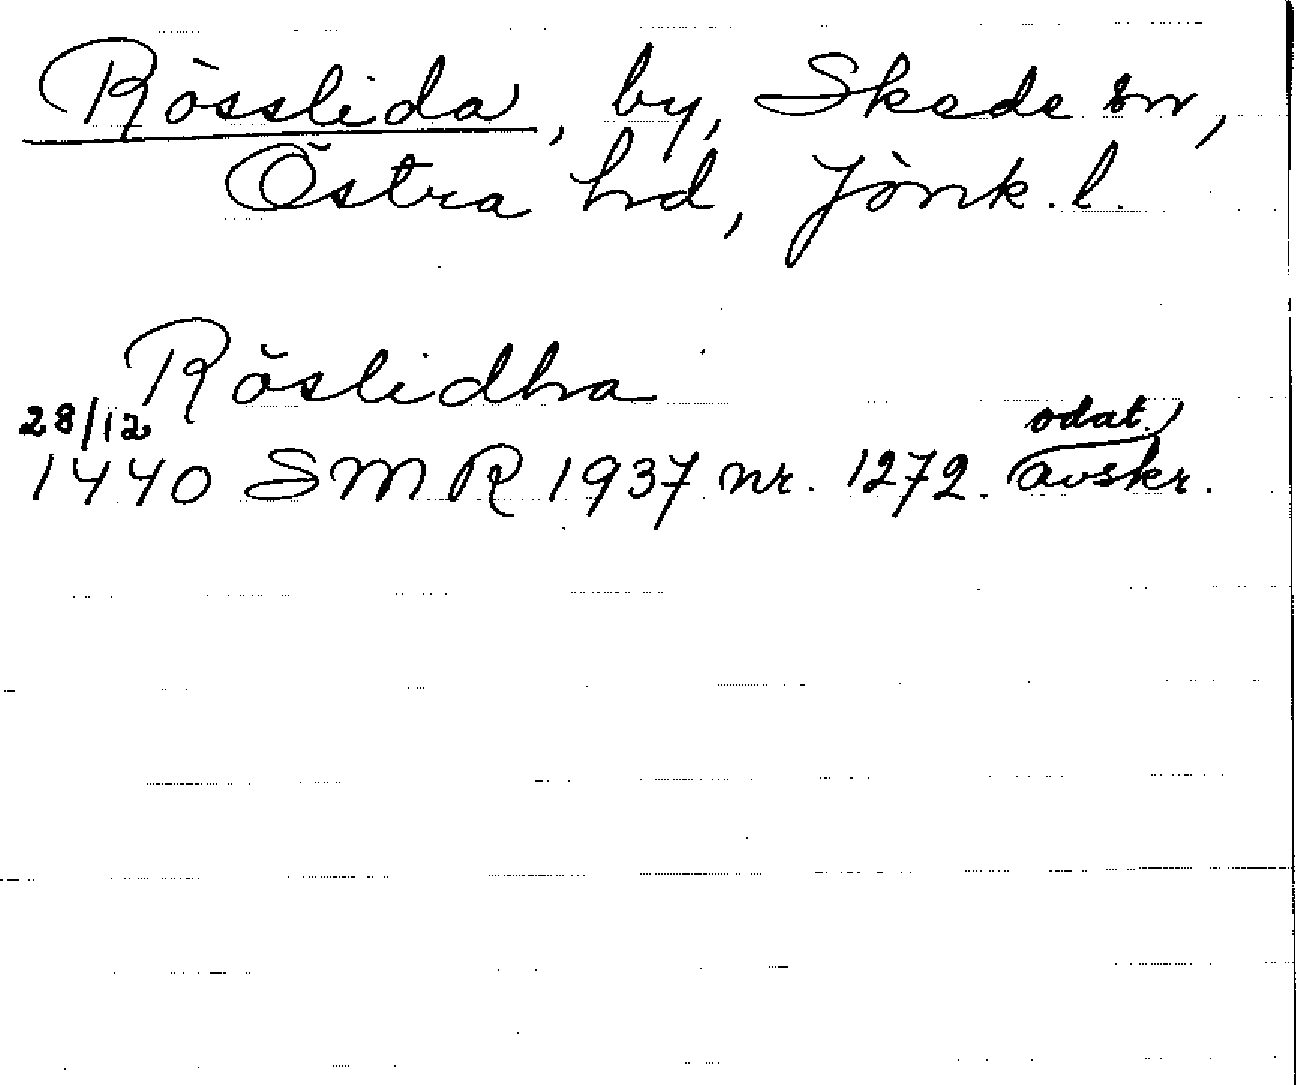 Rösslida, by, Skede sn,
Östra hd, Jönk. l.
Röslidha
28/12 odat.
1440 SMR 1937 nr. 1272. avskr.